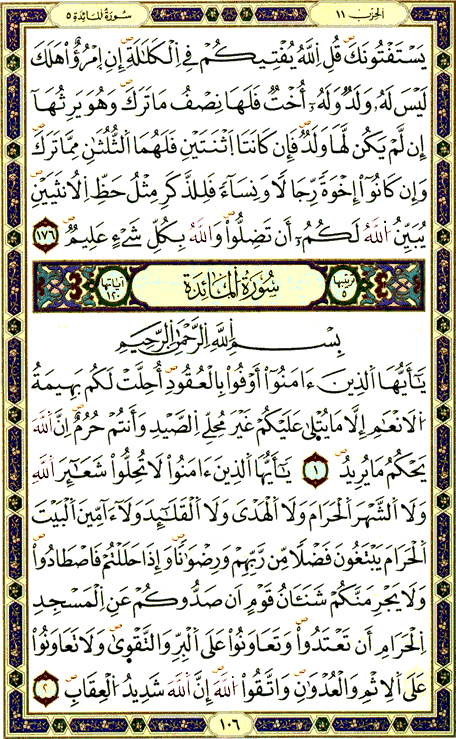 الحزب ١١
سورة المائدة ٥
يَسْتَفْتُونَكَۖ قُلِ اِ۬للَّهُ يُفْتِيكُمْ فِے اِ۬لْكَلَٰلَةِۖ إِنِ اِ۪مْرُؤٌاْ هَلَكَ
لَيْسَ لَهُۥ وَلَدٌ وَلَهُۥٓ أُخْتٌ فَلَهَا نِصْفُ مَا تَرَكَۖ وَهُوَ يَرِثُهَآ
إِن لَّمْ يَكُن لَّهَا وَلَدٌۖ فَإِن كَانَتَا اَ۪ثْنَتَيْنِ فَلَهُمَا اَ۬لثُّلُثَٰنِ مِمَّا تَرَكَۖ
وَإِن كَانُوٓاْ إِخْوَةً رِّجَالًا وَنِسَآءً فَلِلذَّكَرِ مِثْلُ حَظِّ اِ۬لُانثَيَيْنِۖ
يُبَيِّنُ اُ۬للَّهُ لَكُمُۥٓ أَن تَضِلُّواْۖ وَاللَّهُ بِكُلِّ شَےْءٍ عَلِيمٌۖ ١٧٦
ترتيبها ٥
سُورَةُ الْمَائِدَة
آياتها ١٢٠
بِسْمِ اِ۬للَّهِ اِ۬لرَّحْمَٰنِ اِ۬لرَّحِيمِ
يَٰٓأَيُّهَا اَ۬لذِينَ ءَامَنُوٓاْ أَوْفُواْ بِالْعُقُودِۖ أُحِلَّتْ لَكُم بَهِيمَةُ
اُ۬لَانْعَٰمِ إِلَّا مَا يُتْلَىٰ عَلَيْكُمْ غَيْرَ مُحِلِّے اِ۬لصَّيْدِ وَأَنتُمْ حُرُمٌۖ اِنَّ اَ۬للَّهَ
يَحْكُمُ مَا يُرِيدُۖ ١ يَٰٓأَيُّهَا اَ۬لذِينَ ءَامَنُواْ لَا تُحِلُّواْ شَعَٰٓئِرَ اَ۬للَّهِ
وَلَا اَ۬لشَّهْرَ اَ۬لْحَرَامَ وَلَا اَ۬لْهَدْيَ وَلَا اَ۬لْقَلَٰٓئِدَ وَلَآ ءَآمِّينَ اَ۬لْبَيْتَ
اَ۬لْحَرَامَ يَبْتَغُونَ فَضْلًا مِّن رَّبِّهِمْ وَرِضْوَٰنًاۖ وَإِذَا حَلَلْتُمْ فَاصْطَادُواْۖ
وَلَا يَجْرِمَنَّكُمْ شَنَـَٔانُ قَوْمٍ اَن صَدُّوكُمْ عَنِ اِ۬لْمَسْجِدِ
اِ۬لْحَرَامِ أَن تَعْتَدُواْۖ وَتَعَاوَنُواْ عَلَى اَ۬لْبِرِّ وَالتَّقْوَىٰۖ وَلَا تَعَاوَنُواْ
عَلَى اَ۬لِاثْمِ وَالْعُدْوَٰنِۖ وَاتَّقُواْ اُ۬للَّهَۖ إِنَّ اَ۬للَّهَ شَدِيدُ اُ۬لْعِقَابِۖ ٢
١٠٦